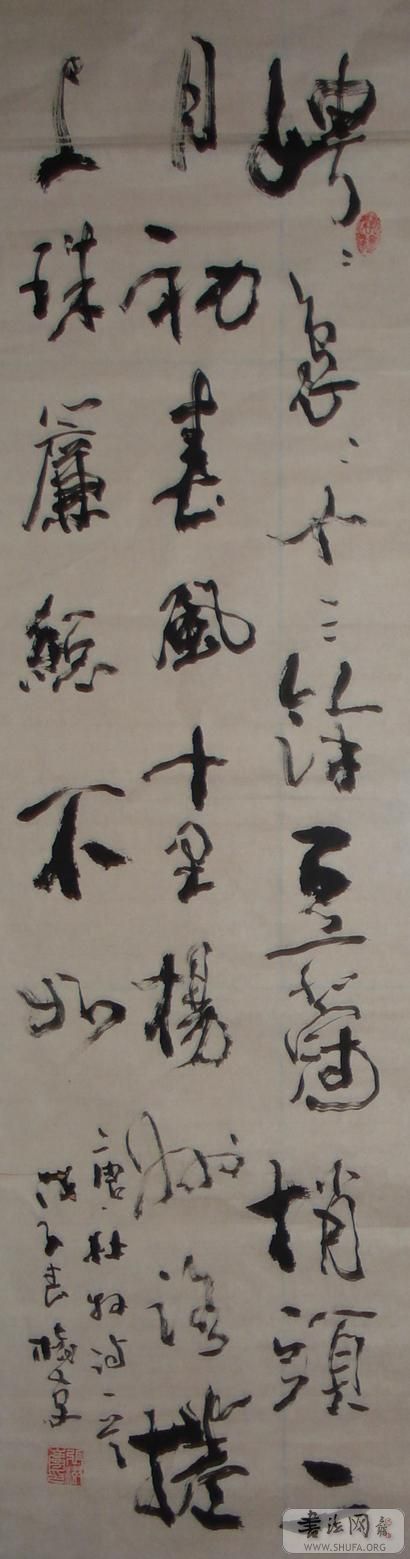 娉〻裊〻十三餘豆蔻梢頭二
月初春風十里楊州路捲
上珠簾總不如
唐杜牧詩一首
戊子春
書法网
WWW.SHUFA.ORG